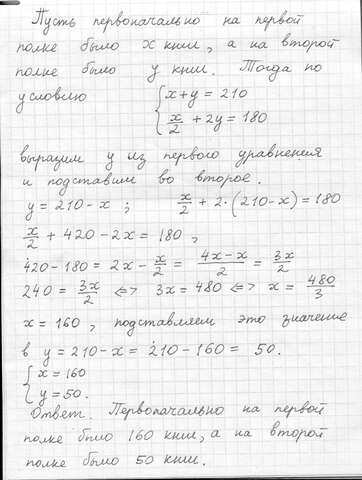 Пусть первоначально на первой
полке было x книг, а на второй
полке было y книг. Тогда по
условию { x + y = 210
x/2 + 2y = 180
выразим y из первого уравнения
и подставим во второе.
y = 210 - x ; x/2 + 2·(210 - x) = 180
x/2 + 420 - 2x = 180 ,
420 - 180 = 2x - x/2 = (4x - x)/2 = 3x/2
240 = 3x/2 <=> 3x = 480 <=> x = 480/3
x = 160 , подставляем это значение
в y = 210 - x = 210 - 160 = 50.
{ x = 160
y = 50.
Ответ. Первоначально на первой
полке было 160 книг, а на второй
полке было 50 книг.